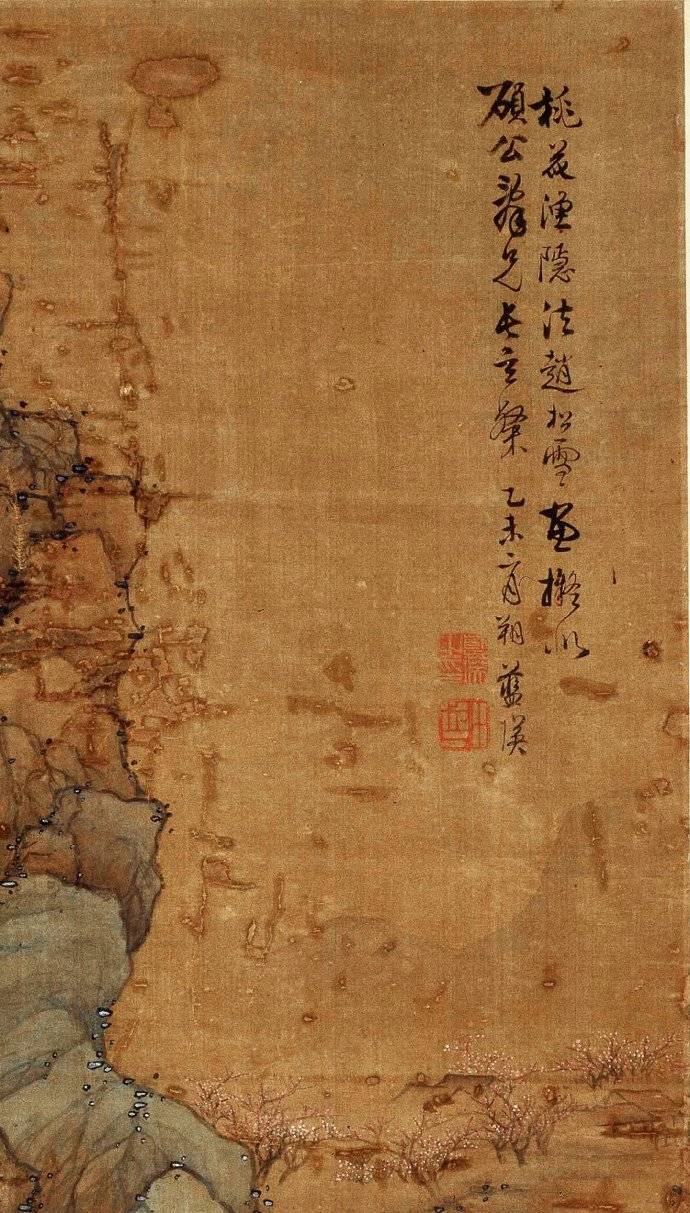 桃花漁隱法趙松雪畫擬似
碩公辭兄長言粲乙未二月朔藍瑛